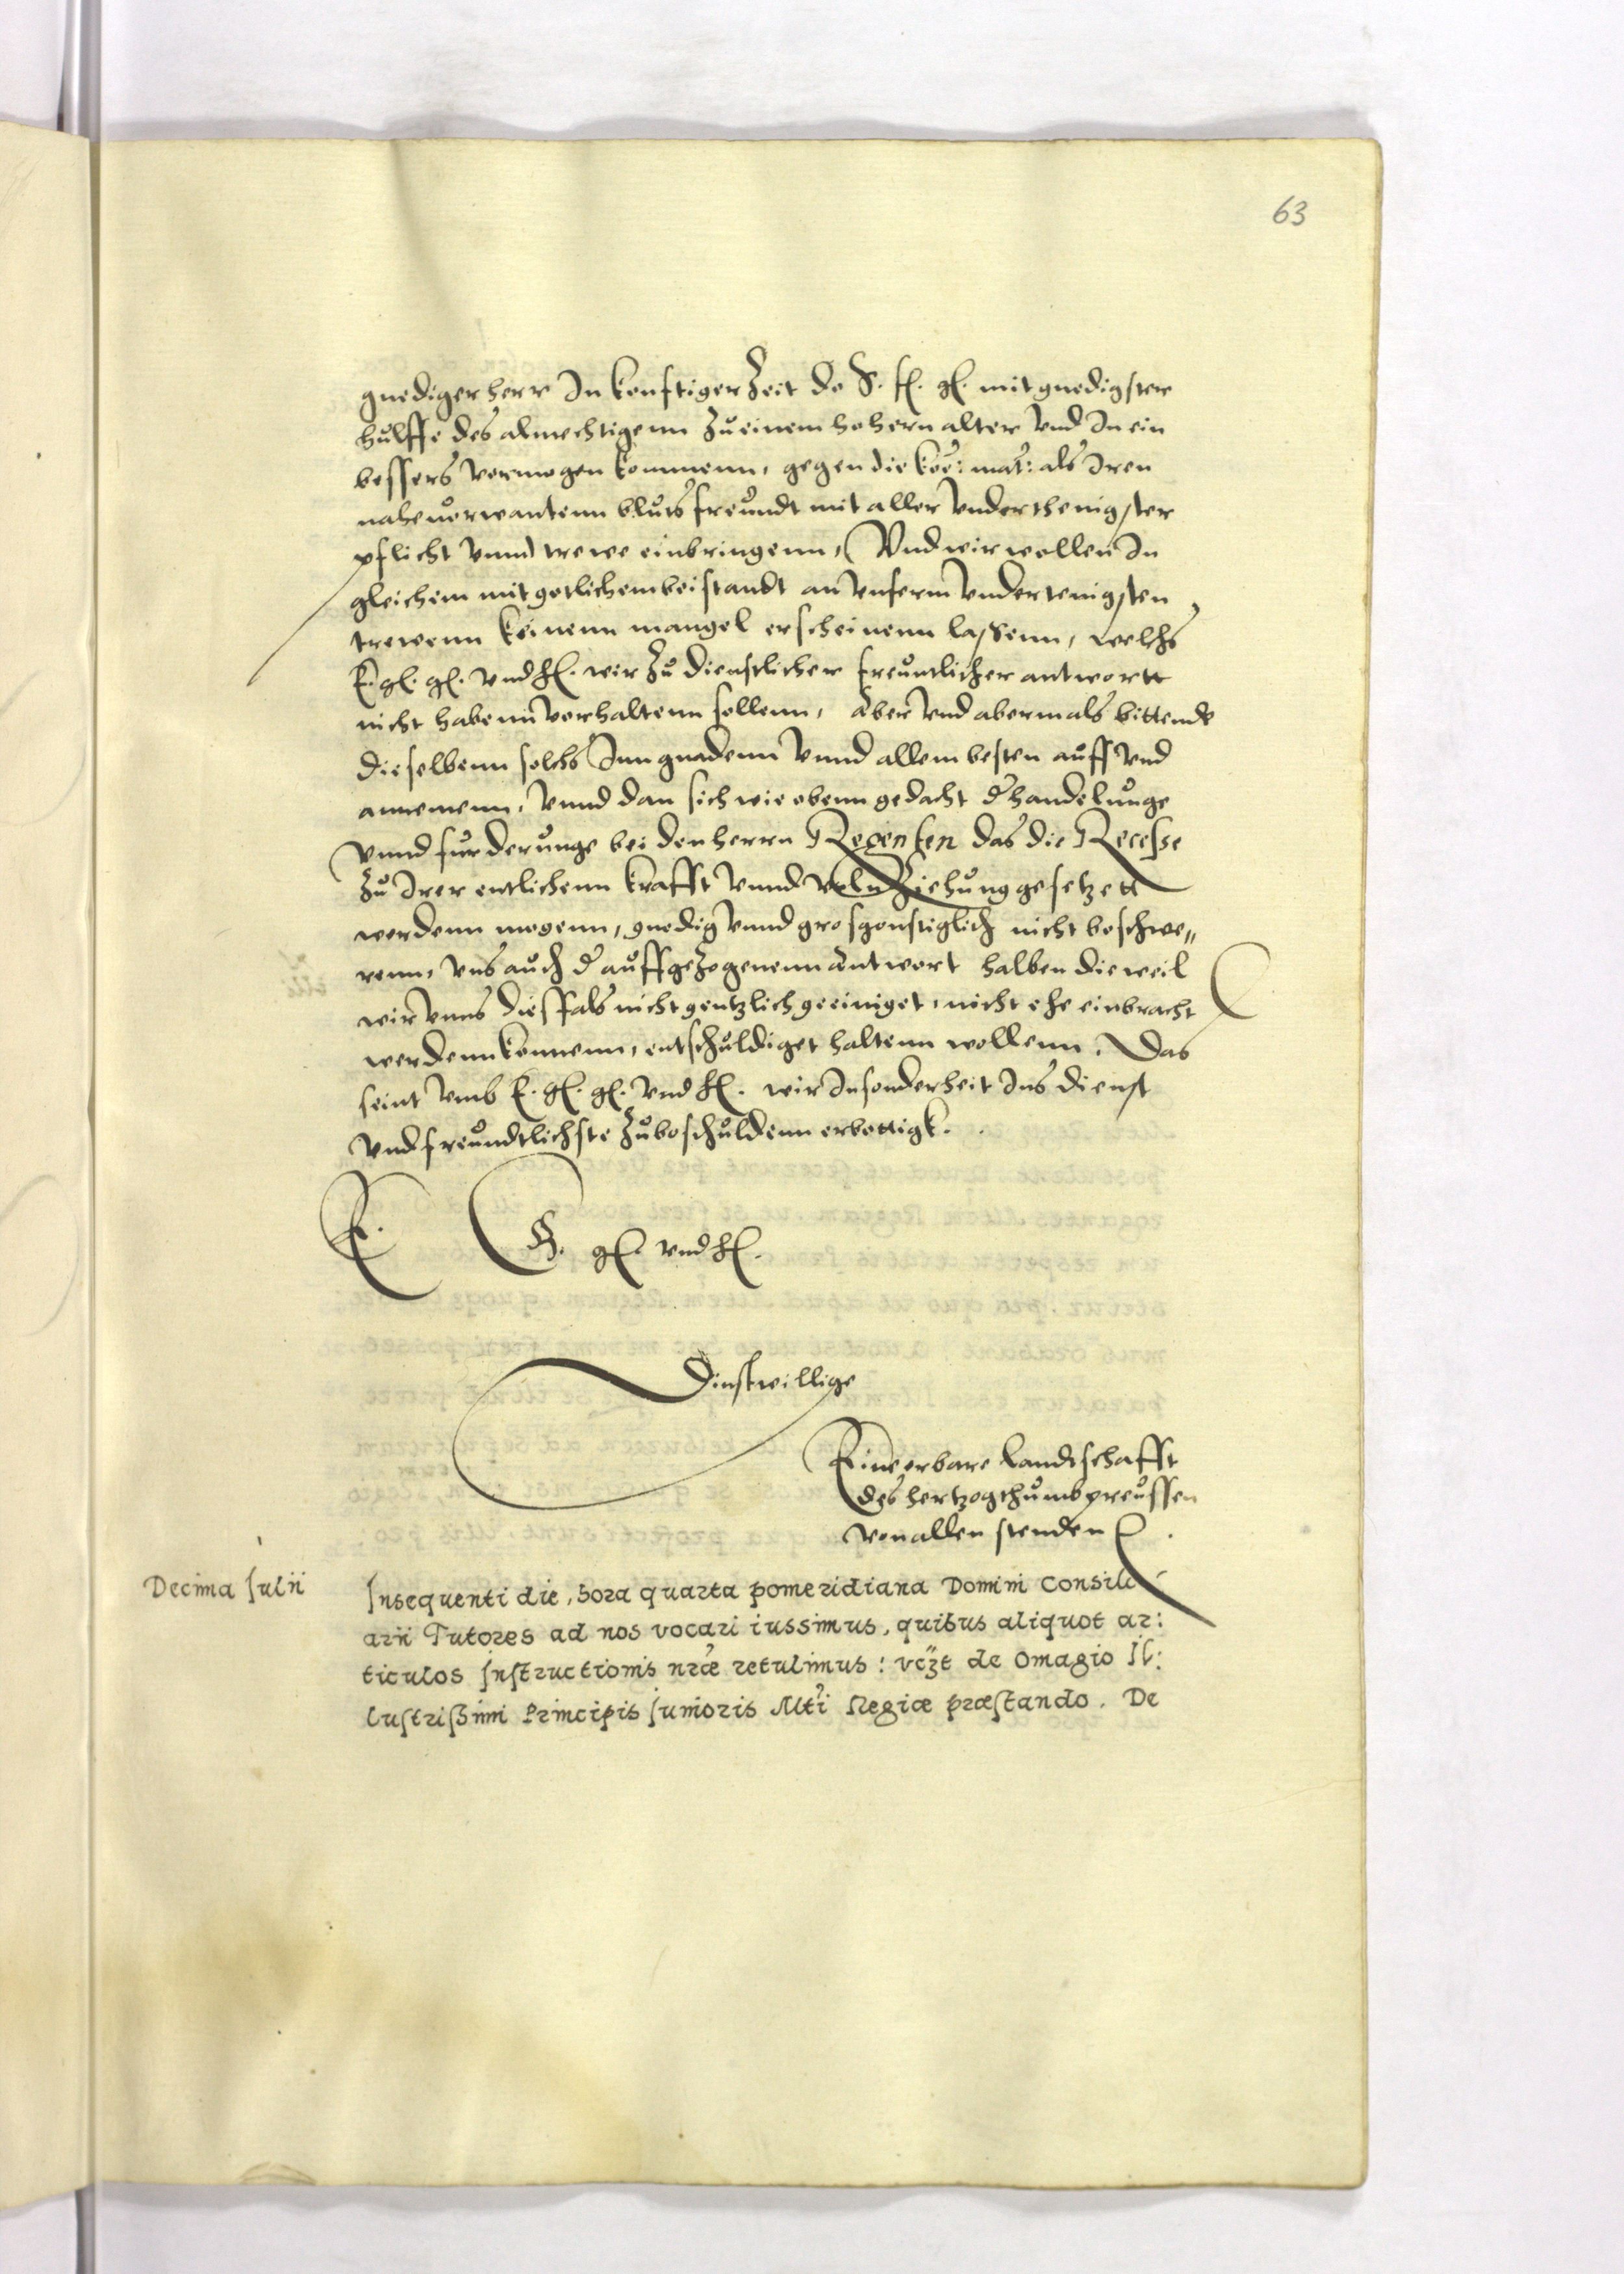 63
gnediger herr In konftiger Zeit do S. f. g. mit gnedigster
hulffe des almechtigenn zu einem hohern alter vnd In ein
bessers vermogen kommenn, gegen die koe: mat: als Iren
nahe vorwantenn bluts freundt mit aller vnderthenigster
pflicht vnnd trewe einbringenn, Vnd wir wollen In
gleichem mit gotlichem beistandt an vnserm vndertenigsten
trewenn keinenn mangel erscheinenn lassenn, welchs
E. g. g. vnd h. wir zu dienstlicher freuntlicher antwortt
nicht habenn vorhaltenn sollenn, Aber vnd abermals bittende
dieselbenn solchs Inn gnadenn vnnd allem besten auff vnd
annemenn, vnnd dan sich wie obenn gedacht d' handelunge
vnnd furderunge bei den herrn Regenten das die Recesse
zu Irer entlichenn krafft vnnd volnziehung gesetzett
werdenn mogenn, gnedig vnnd grosgonstiglich nicht beschwe„
renn, vns auch d' auffgezogenenn antwort halben die weil
wir vnns diesfals nicht gentzlich geeiniget, nicht ehe einbracht
werdenn konnenn, entschuldiget haltenn wollenn. Das
seint vmb E. g. g. vnd h. wir Insonderheit Ins dienst
vnd freundtlichste zuboschuldenn erbottigk.
E. G. g. vnd h.
Dinstwillige
Eine erbare Landtschafft
des hertzogthumb preussen
von allen stenden
Decima Julii
Insequenti die, hora quarta pomeridiana Domini Consili
arii Tutores ad nos vocari iussimus, quibus aliquot ar:
ticulos Instructionis nrae retulimus: vczt de Omagio Il:
lustrissimi Principis Iunioris Mti Regiae praestando. De